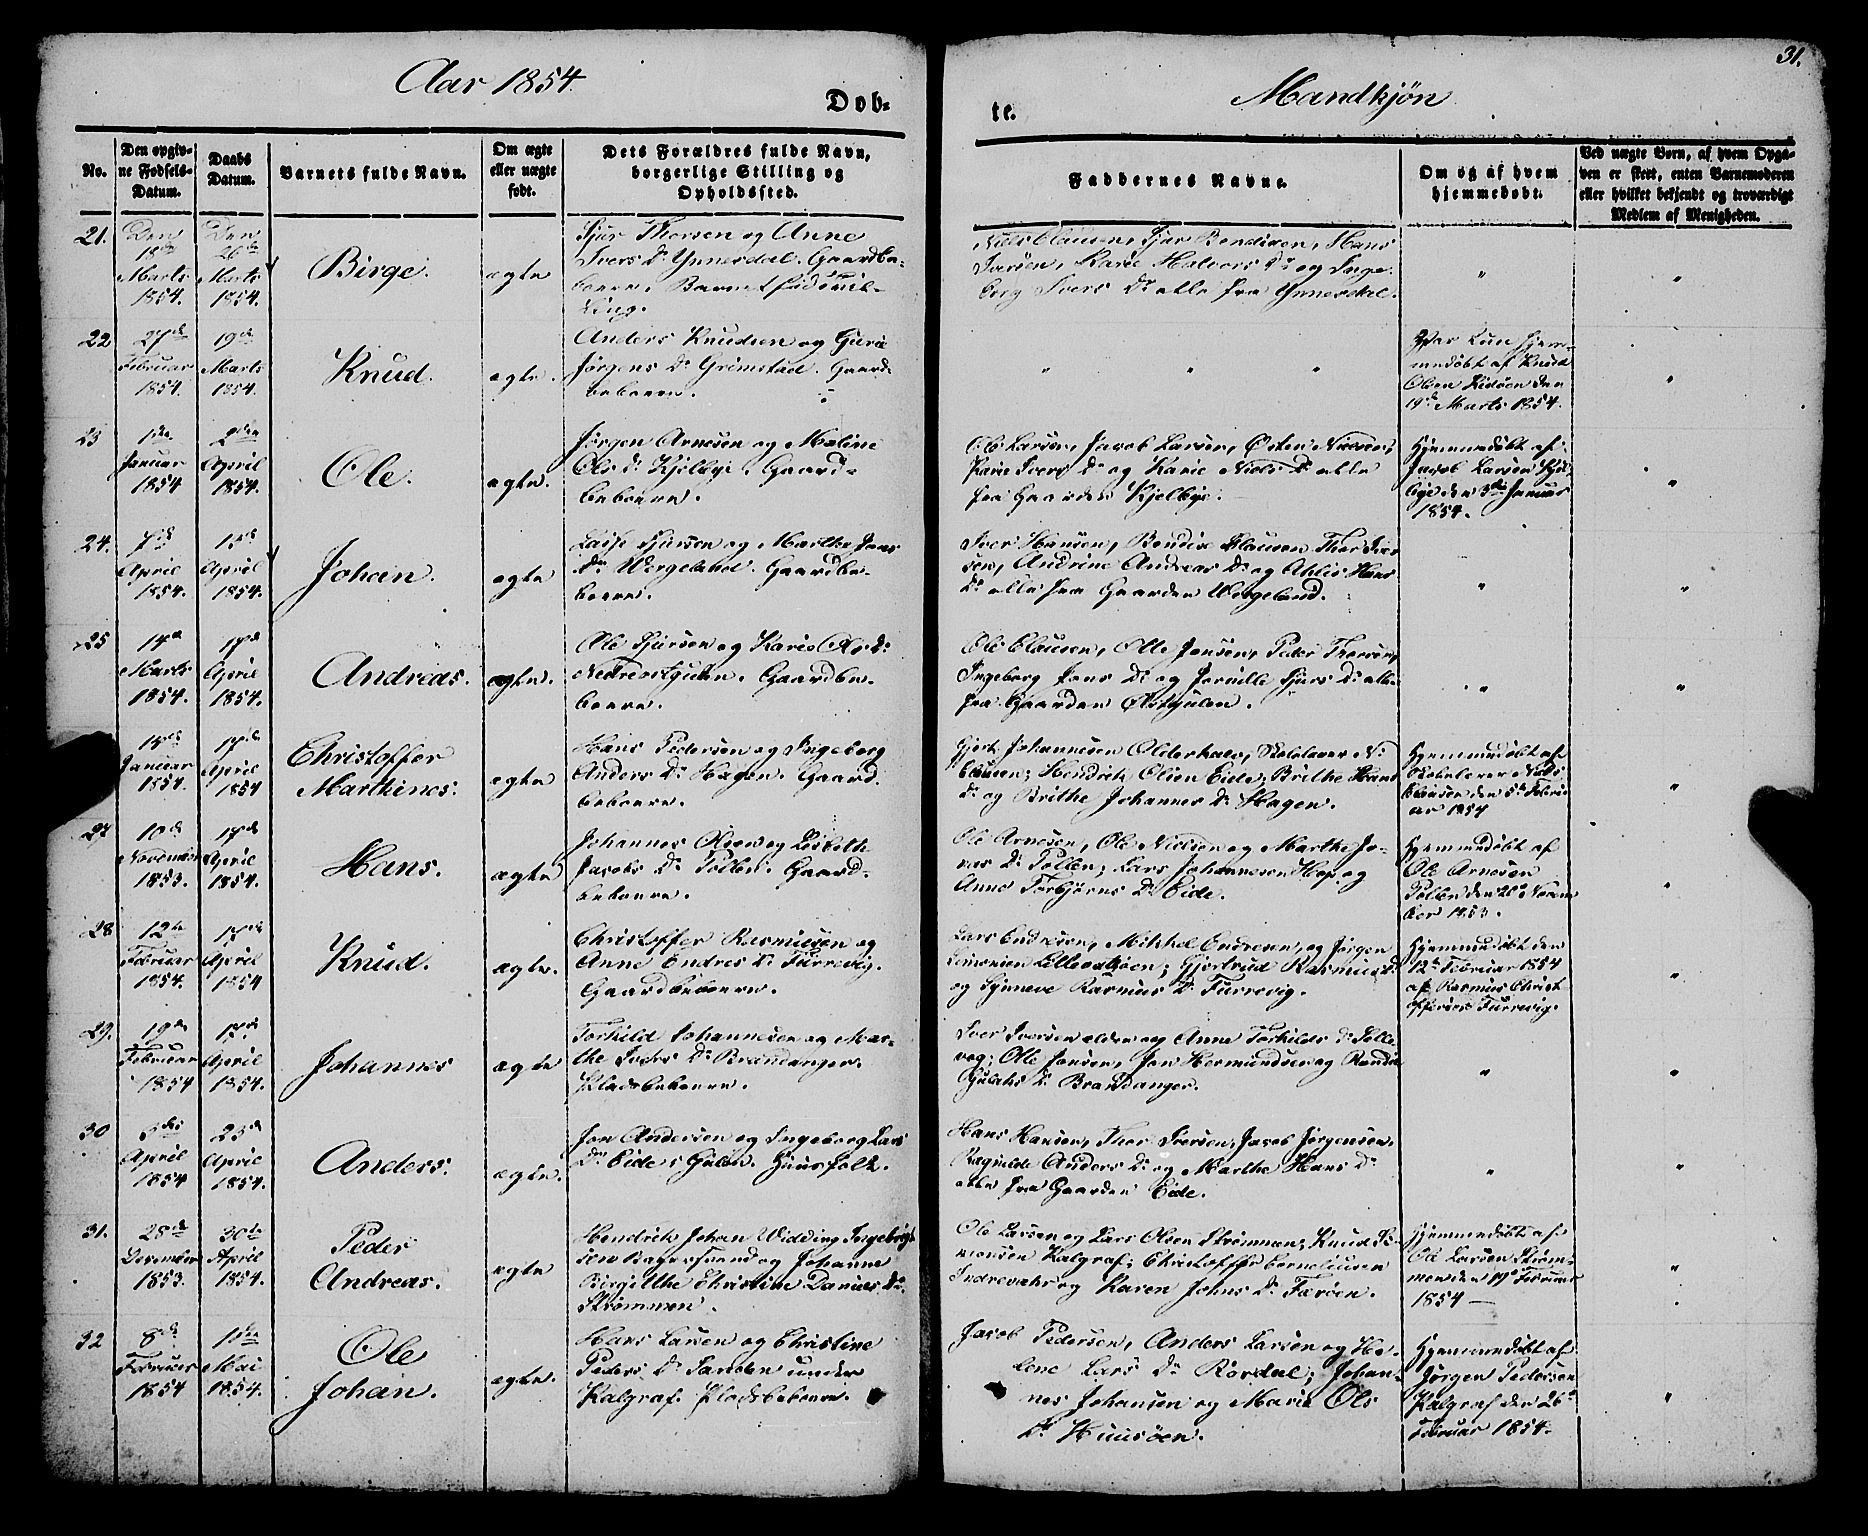 31.
Aar 1854.
Døb-
te.
Mandkjøn
No.
Den opgiv-
ne Fødsels-
Datum.
Daabs
Datum.
Barnets fulde Navn.
Om ægte
eller uægte
født.
Dets Forældres fulde Navn,
borgerlige Stilling og
Opholdssted.
Faddernes Navne.
Om og af hvem
hjemmedøbt.
Ved uægte Børn, af hvem Opga-
ven er skeet, enten Barnemoderen
eller hvilket bekjendt og troværdigt
Medlem af Menigheden.
21.
Den
18de
Marts
1854.
Den
26de
Marts
1854.
Birge.
ægte
Sjur Thorsen og Anne
Ivers Dr Ynnesdal. Gaardbe-
boere. Barnet født
Niels Clausen, Sjur Bendixen, Hans
Iversen, Karie Halvors Dr og Inge-
borg Ivers Dr alle fra Ynnesdal.
"
"
22
27de
Februar
1854.
19de
Marts
1854.
Knud.
ægte.
Anders Knudsen og Guri
Jørgens Dr Grimstad. Gaard-
beboere.
" " "
Var kun hjem-
medøbt af Knud
Olsen den
19de Marts 1854.
"
23
1ste
Januar
1854
2den
April
1854.
Ole.
ægte.
Jørgen Arnesen og Maline
Ols Dr Kjelbye. Gaard-
beboere.
Ole Larsen, Jacob Larsen, Østen Nielsen,
Karie Ivers Dr og Karie Niels Dr alle
fra Gaarden Kjelbye.
Hjemmedøbt af
Jacob Larsen Kjel-
bye den 3de Januar
1854.
"
24.
7de
April
1854.
13de
April
1854.
Johan.
ægte
Sjursen og Marthe Jans
Dr Wergeland. Gaardbe-
boere.
Iver Hansen, Bendix Clausen, Thor Iver
sen, Andrine Andreas Dr og Ahlis Hans
Dr alle fra Gaarden Wergeland.
"
"
25
14de
Marts
1854.
17de
April
1854.
Andreas.
ægte.
Ole Sjursen og Karie Ols Dr
Nedreostgulen. Gaardbe-
boere.
Ole Clausen, Olle Jensen, Peder Thorsen,
Ingeborg Jens Dr og Pernille Sjurs Dr alle
fra Gaarden Østgulen.
"
"
14de
Januar
1854.
17de
April
1854
Christoffer
Marthinus.
ægte
Hans Pedersen og Ingeborg
Anders Dr Hagen. Gaard-
beboere.
Gjert Johannesen Olderhals, Skolelærer N:
Clausen; Hendrik Olsen Eide, Brithe Hans
Dr og Brithe Johannes Dr Hagen.
Hjemmedøbt af
Skolelærer Niels
Clausen den 5te Febru
ar 1854
"
27
10de
November
1853.
17de
April
1854.
Hans.
ægte
Johannes Olsen og Lisbeth
Jacobs Dr Pollen. Gaard-
beboere.
Ole Arnesen, Ole Nielsen og Marthe Jo-
nas Dr Pollen; Lars Johannesen Hop og
Anne Torbjørns Dr Eide.
Hjemmedøbt af
Ole Arnesen
Pollen den 20de Novem
ber 1853.
"
28
12te
Februar
1854.
17de
April
1854
Knud.
ægte.
Christoffer Rasmusen og
Anne Endres Dr Furrevig.
Gaardbeboere.
Lars Endresen, Mikkel Endresen, og Jørgen
Simonsen Gjertrud Rasmus Dr
og Synneve Rasmus Dr Furrevig.
Hjemmedøbt den
12te Februar 1854
af Rasmus Christ
offersen Furrevig.
"
29.
19de
Februar
1854
17de
April
1854.
Johannes
ægte
Torkild Johannesen og Mar-
the Ivers Dr Brandanger.
Pladsbeboere.
Iver Iversen ældre og Anne Torkilds Dr
Ole Jensen, Jon Hermundsen og
Dr Brandanger.
"
"
30
April
1854
23de
April
1854.
Anders.
ægte.
Jon Andersen og Ingeborg Lars
Dr Eide i Gulen. Huusfolk.
Hans Hansen, Thor Iversen, Jacob Jørgensen,
Ragnilde Anders Dr og Marthe Hans Dr
alle fra Gaarden Eide.
"
"
31.
28de
December
1853.
30te
April
1854.
Peder
Andreas.
ægte
Hendrik Johan Widding Ingebrigt
sen og Johanne
Birgitthe Christine Daniels Dr
Strømmen.
Ole Larsen og Lars Olsen Strømmen; Knud Si-
monsen Kalgraf; Christoffer Cornelius
og Karen Johns Dr Færøen.
Hjemmedøbt af
Ole Larsen Strøm-
men den 19de Februar
1854
"
32
8de
Februar
1854
1ste
Mai
1854.
Ole
Johan.
ægte.
Hans Larsen og Christine
Peders Dr under
Kalgraf. Pladsbeboere.
Jacob Pedersen, Anders Larsen og He-
lene Lars Dr Rørdal; Johan-
nes Johansen og Marie Ols
Dr Huusøen.
Hjemmedøbt af
Jørgen Pedersen
Kalgraf den 26de
Februar 1854.
"